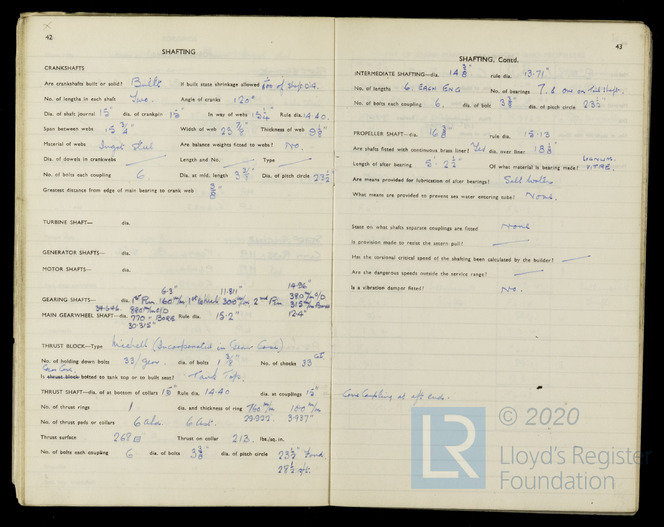 42
SHAFTING
CRANKSHAFTS
Are crankshafts built or solid? Built If built state shrinkage allowed of shaft dia.
No. of lengths in each shaft Two. Angle of cranks 120°
Dia. of shaft journal 15" dia. of crankpin 15" In way of webs 15 1/4" Rule dia. 14.40.
Span between webs 15 3/4" Width of web 23 Thickness of web 9
Material of webs Ingot Steel Are balance weights fitted to webs? No.
Dia. of dowels in crankwebs Length and No. Type
No. of bolts each coupling 6 Dia. at mid. length 3 Dia. of pitch circle 23 1/2"
Greatest distance from edge of main bearing to crank web
TURBINE SHAFT— dia.
GENERATOR SHAFTS— dia.
MOTOR SHAFTS— dia.
6.3" 11.811" 14.96"
GEARING SHAFTS— dia. 1st Pin 160 m/m 1st Wheel 300 m/m 2nd Pin 380 m/m S/O
34.646 880 m/m S/O 315 m/m Bore
MAIN GEARWHEEL SHAFT— dia. 770 - BORE Rule dia. 15.2" 12.4"
30.315"
THRUST BLOCK—Type Michell (Incorporated in Gear Case)
No. of holding down bolts 33/gear. dia. of bolts 1 No. of chocks 33 C.I.
Gear Case.
Is thrust block bolted to tank top or to built seat? Tank Top.
THRUST SHAFT—dia. of at bottom of collars 15" Rule dia. 14.40 dia. at couplings 15"
No. of thrust rings 1 dia. and thickness of ring 760 m/m 100 m/m
No. of thrust pads or collars 6 Ahd. 6 Ast. 3.937"
Thrust surface 268 Thrust on collar 213. lbs./sq. in.
No. of bolts each coupling 6 dia. of bolts 3 dia. of pitch circle 23 1/2" Fwd.
28 1/2" aft.
43
SHAFTING, Contd.
INTERMEDIATE SHAFTING—dia. 14 3/8" rule dia. 13.71"
No. of lengths 6. EACH ENG No. of bearings 7. & one on tail shaft.
No. of bolts each coupling 6. dia. of bolt 3 dia. of pitch circle 23 1/2"
PROPELLER SHAFT—dia. 16 rule dia. 15.13
Are shafts fitted with continuous bronze liner? Yes dia. over liner 18
Length of after bearing 5' 2 1/2" Of what material is bearing made? LIGNUM VITAE.
Are means provided for lubrication of after bearings? Salt Water
What means are provided to prevent sea water entering tube? None.
State on what shafts separate couplings are fitted None
Is provision made to resist the astern pull?
Has the torsional critical speed of the shafting been calculated by the builder?
Are the dangerous speeds outside the service range?
Is a vibration damper fitted? No.
Cone Coupling at aft ends.
© 2020
LR
Lloyd's Register
Foundation